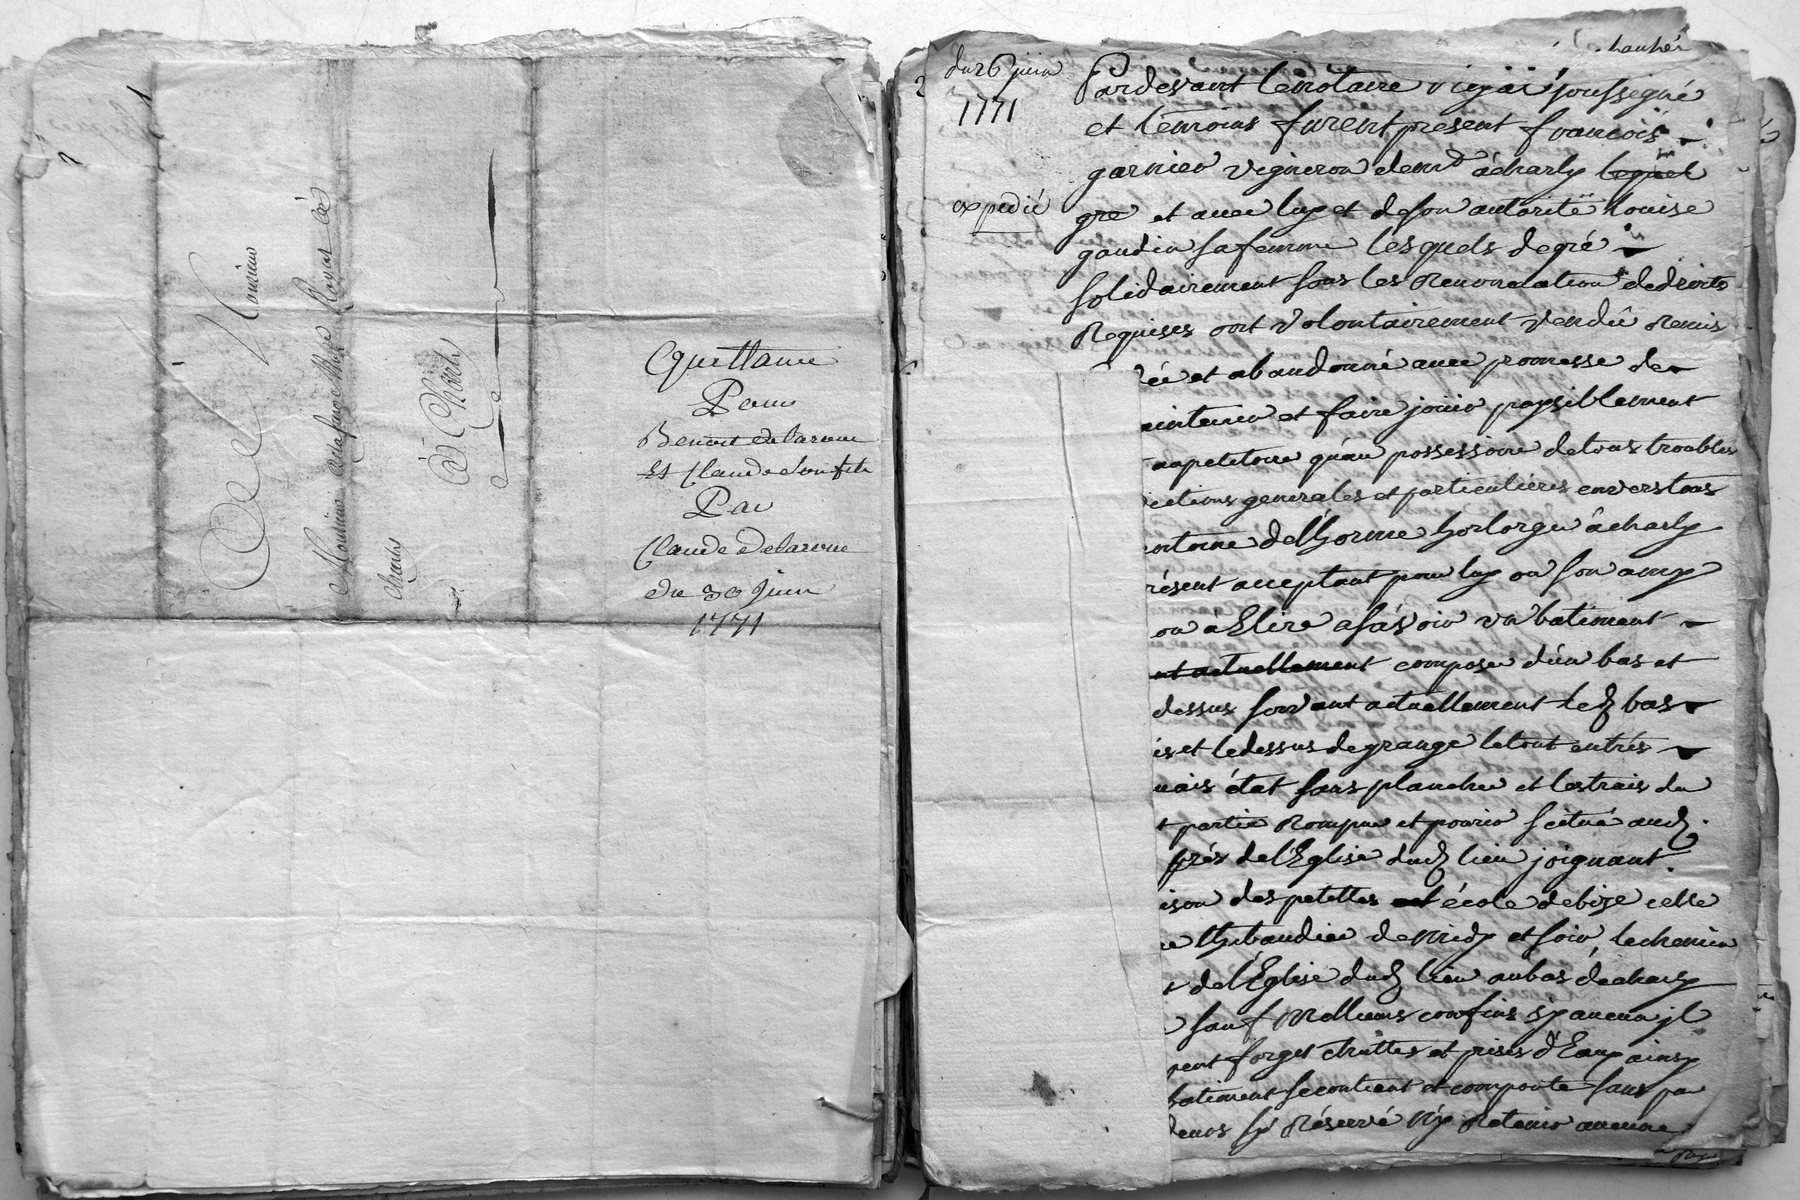 A Monsieur
Monsieur
Notaire Royal
A Charly
Charly
Quittance
Pour
Benoit Delaroue
Et Claude son fils
Par
Claude Delaroue
du 30 juin
1771
du 26 juin
1771
expedié
Pardevant le notaire royal soussigné
et temoins furent present francois
garnier vigneron demt à charly lequel
gre et avec luy et de son autorité louise
gaudin sa femme lesquels de gré
solidairement sous les Renonciation de droits
Requises ont volontairement vendû Remis
ée et abandonné avec promesse de
aintenir et faire joüir paysiblement
au petitoire qu'au possessoire de tous troubles
ictions generales et particulières envers tous
ntoine delhorme horloger à charly
résent acceptant pour luy ou son amy
ou à Elire asávoir un batiment
nt actuellement composé d'un bas et
dessus servant actuellement led bas
is et le dessus de grange le tout en trés
uais état sans plancher et les trais du
t partie Rompue et pourie scitué aud
prés de l'Eglise dud lieu joignant
ison des petittes école de bize celle
e thibaudier de midy et soir le chemin
t de l'Eglise dud lieu au bas de charly
sauf meilleurs confins sy aucun jl
vent forget chuttes et prises d'Eaux ainsy
batiment se contient et comporte sans pa
deurs sÿ Réservé ny Retenir aucune